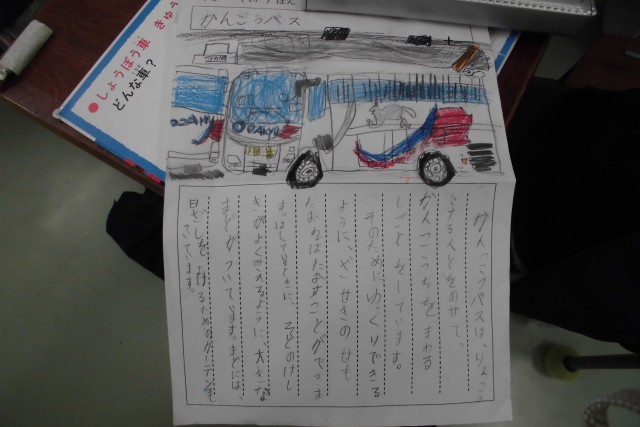 しょうぼう車 きゅう
どんな車?
かんこうバス
かんこうバスは、りょこう
する人をのせて、
かんこうちをまわる
しごとをしています。
そのためにゆっくりできる
ように、ざせきのせも
たおすことができ
そとのけし
きがよく見えるように、大きな
まどがついています。まどには、
日ざしを
るためのカーテンも
ついています。